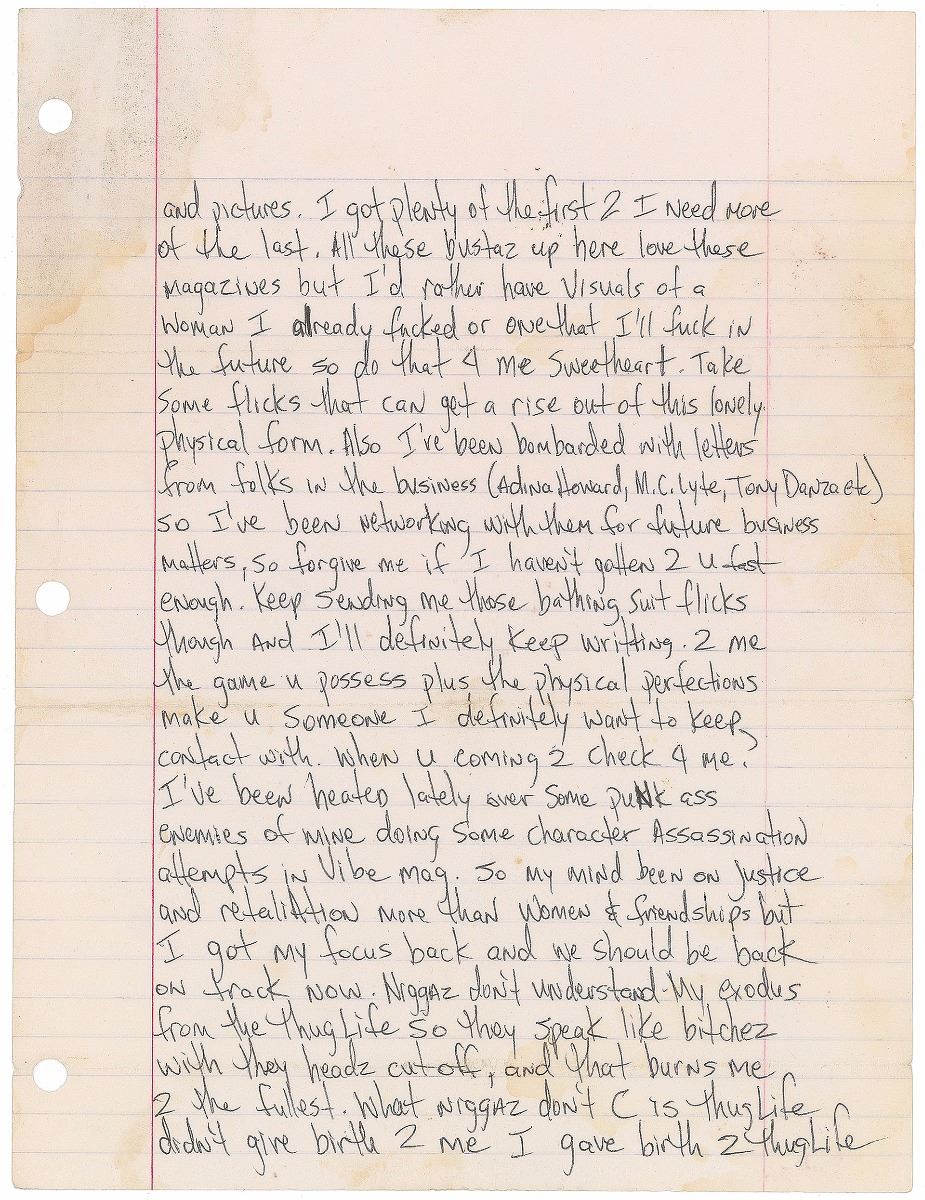 and pictures. I got plenty of the first 2 I need more
of the last. All these bustaz up here love these
magazines but I'd rather have visuals of a
woman I already fucked or one that I'll fuck in
the future so do that 4 me sweetheart. Take
some flicks that can get a rise out of this lonely
physical form. Also I've been bombarded with letters
from folks in the business (Adina Howard, M.C. Lyte, Tony Danza etc)
so I've been networking with them for future business
matters, so forgive me if I haven't gotten 2 u fast
enough. Keep sending me those bathing suit flicks
though and I'll definitely keep writting. 2 me
the game u possess plus the physical perfections
make u someone I definitely want to keep
contact with. When u coming 2 check 4 me?
I've been heated lately over some punk ass
enemies of mine doing some character Assassination
attempts in Vibe mag. So my mind been on justice
and retaliation more than women & friendships but
I got my focus back and we should be back
on track now. Niggaz don't understand My exodus
from the Thug Life so they speak like bitchez
with they headz cut off, and that burns me
2 the fullest. What niggaz don't C is Thug Life
didn't give birth 2 me I gave birth 2 Thug Life